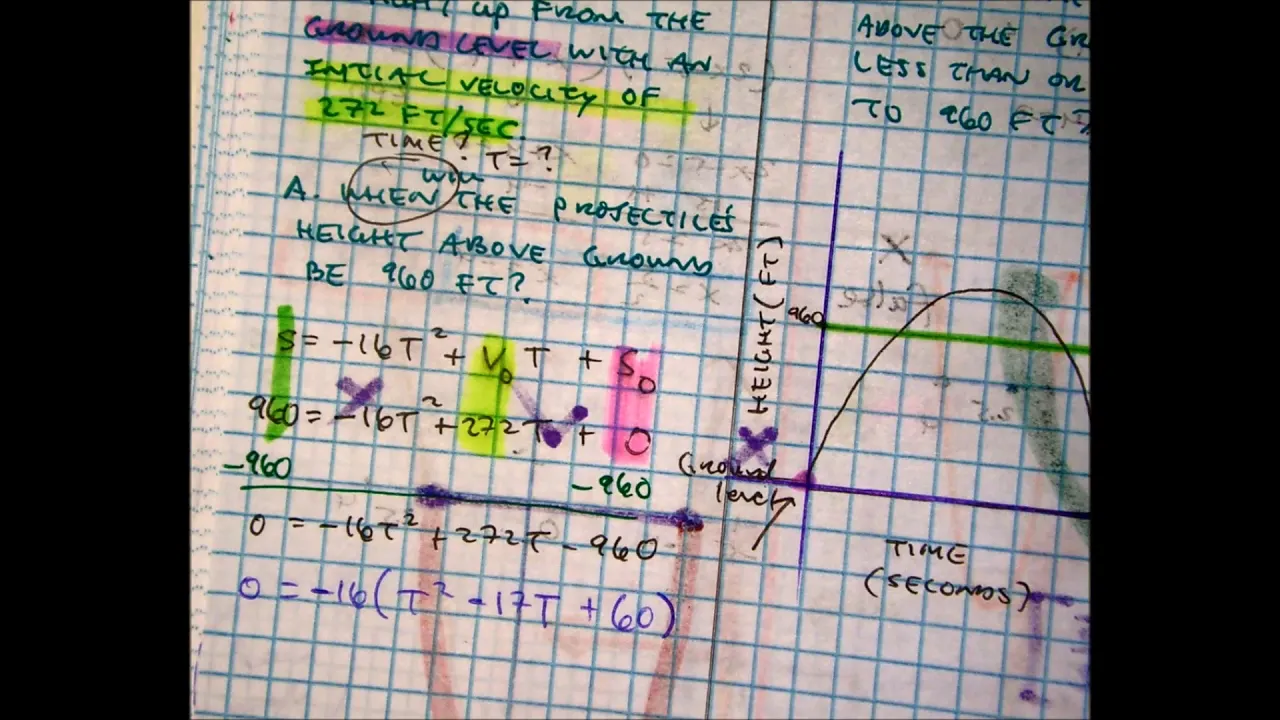 UP FROM THE
GROUND LEVEL WITH AN
INITIAL VELOCITY OF
272 FT/SEC.
TIME? T=?
WILL
A. WHEN THE PROJECTILE'S
HEIGHT ABOVE GROUND
BE 960 FT?
S = -16T² + V₀T + S₀
960 = -16T² + 272T + 0
-960 -960
0 = -16T² + 272T - 960
0 = -16(T² - 17T + 60)
ABOVE THE GR
LESS THAN OR
TO 960 FT?
HEIGHT (FT)
960
Ground
level
TIME
(SECONDS)